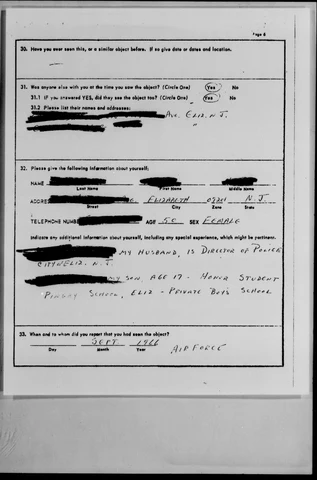 Page 6
30. Have you ever seen this, or a similar object before. If so give date or dates and location.
31. Was anyone else with you at the time you saw the object? (Circle One) Yes No
31.1 If you answered YES, did they see the object too? (Circle One) Yes No
31.2 Please list their names and addresses:
Ave. ELIZ. N.J.
"
32. Please give the following information about yourself:
NAME
Last Name First Name Middle Name
ADDRESS ELIZABETH N.J.
Street City Zone State
TELEPHONE NUMB AGE 50 SEX FEMALE
Indicate any additional information about yourself, including any special experience, which might be pertinent.
MY HUSBAND, IS DIRECTOR OF POLICE
CITY OF ELIZ. N.J.
MY SON, AGE 17 - HONOR STUDENT
PINGRY SCHOOL, ELIZ - PRIVATE BOYS SCHOOL
33. When and to whom did you report that you had seen the object?
SEPT. 1966 AIR FORCE
Day Month Year